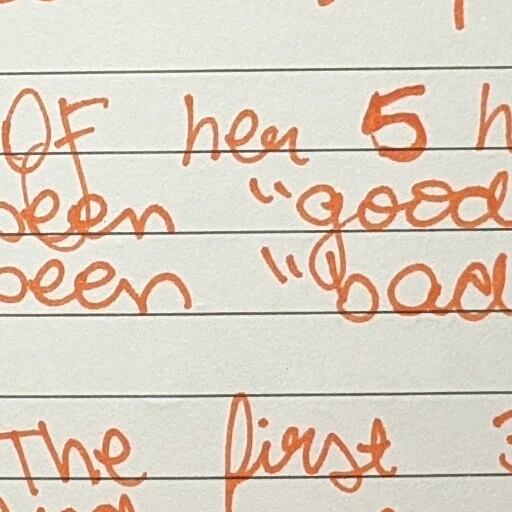 Of her 5 h
been "good
been "bad
The first 3